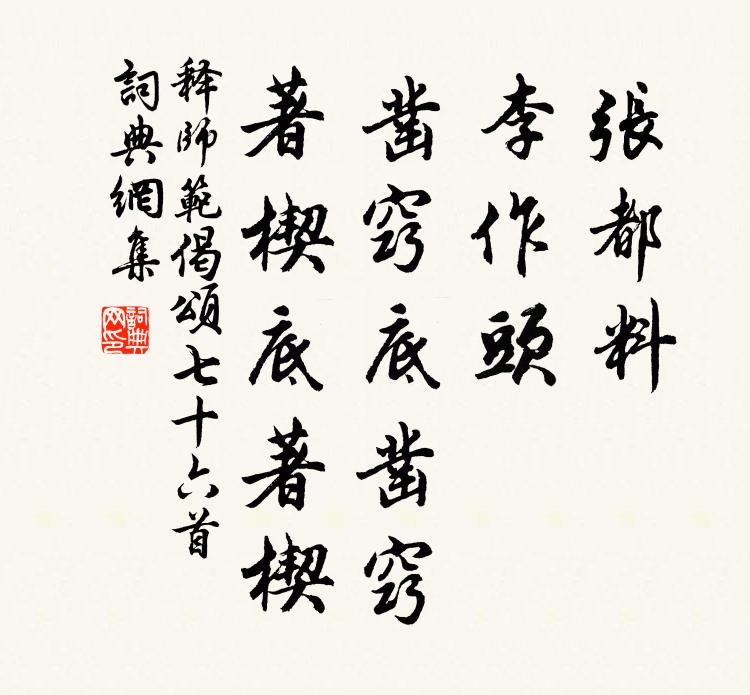 張都料
李作頭
凿窍底凿窍
著楔底著楔
释師範偈頌七十六首
詞典網集
詞典网印